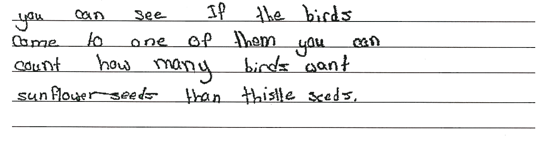 you can see If the birds
come to one of them you can
count how many birds want
sunflower seeds than thistle seeds.